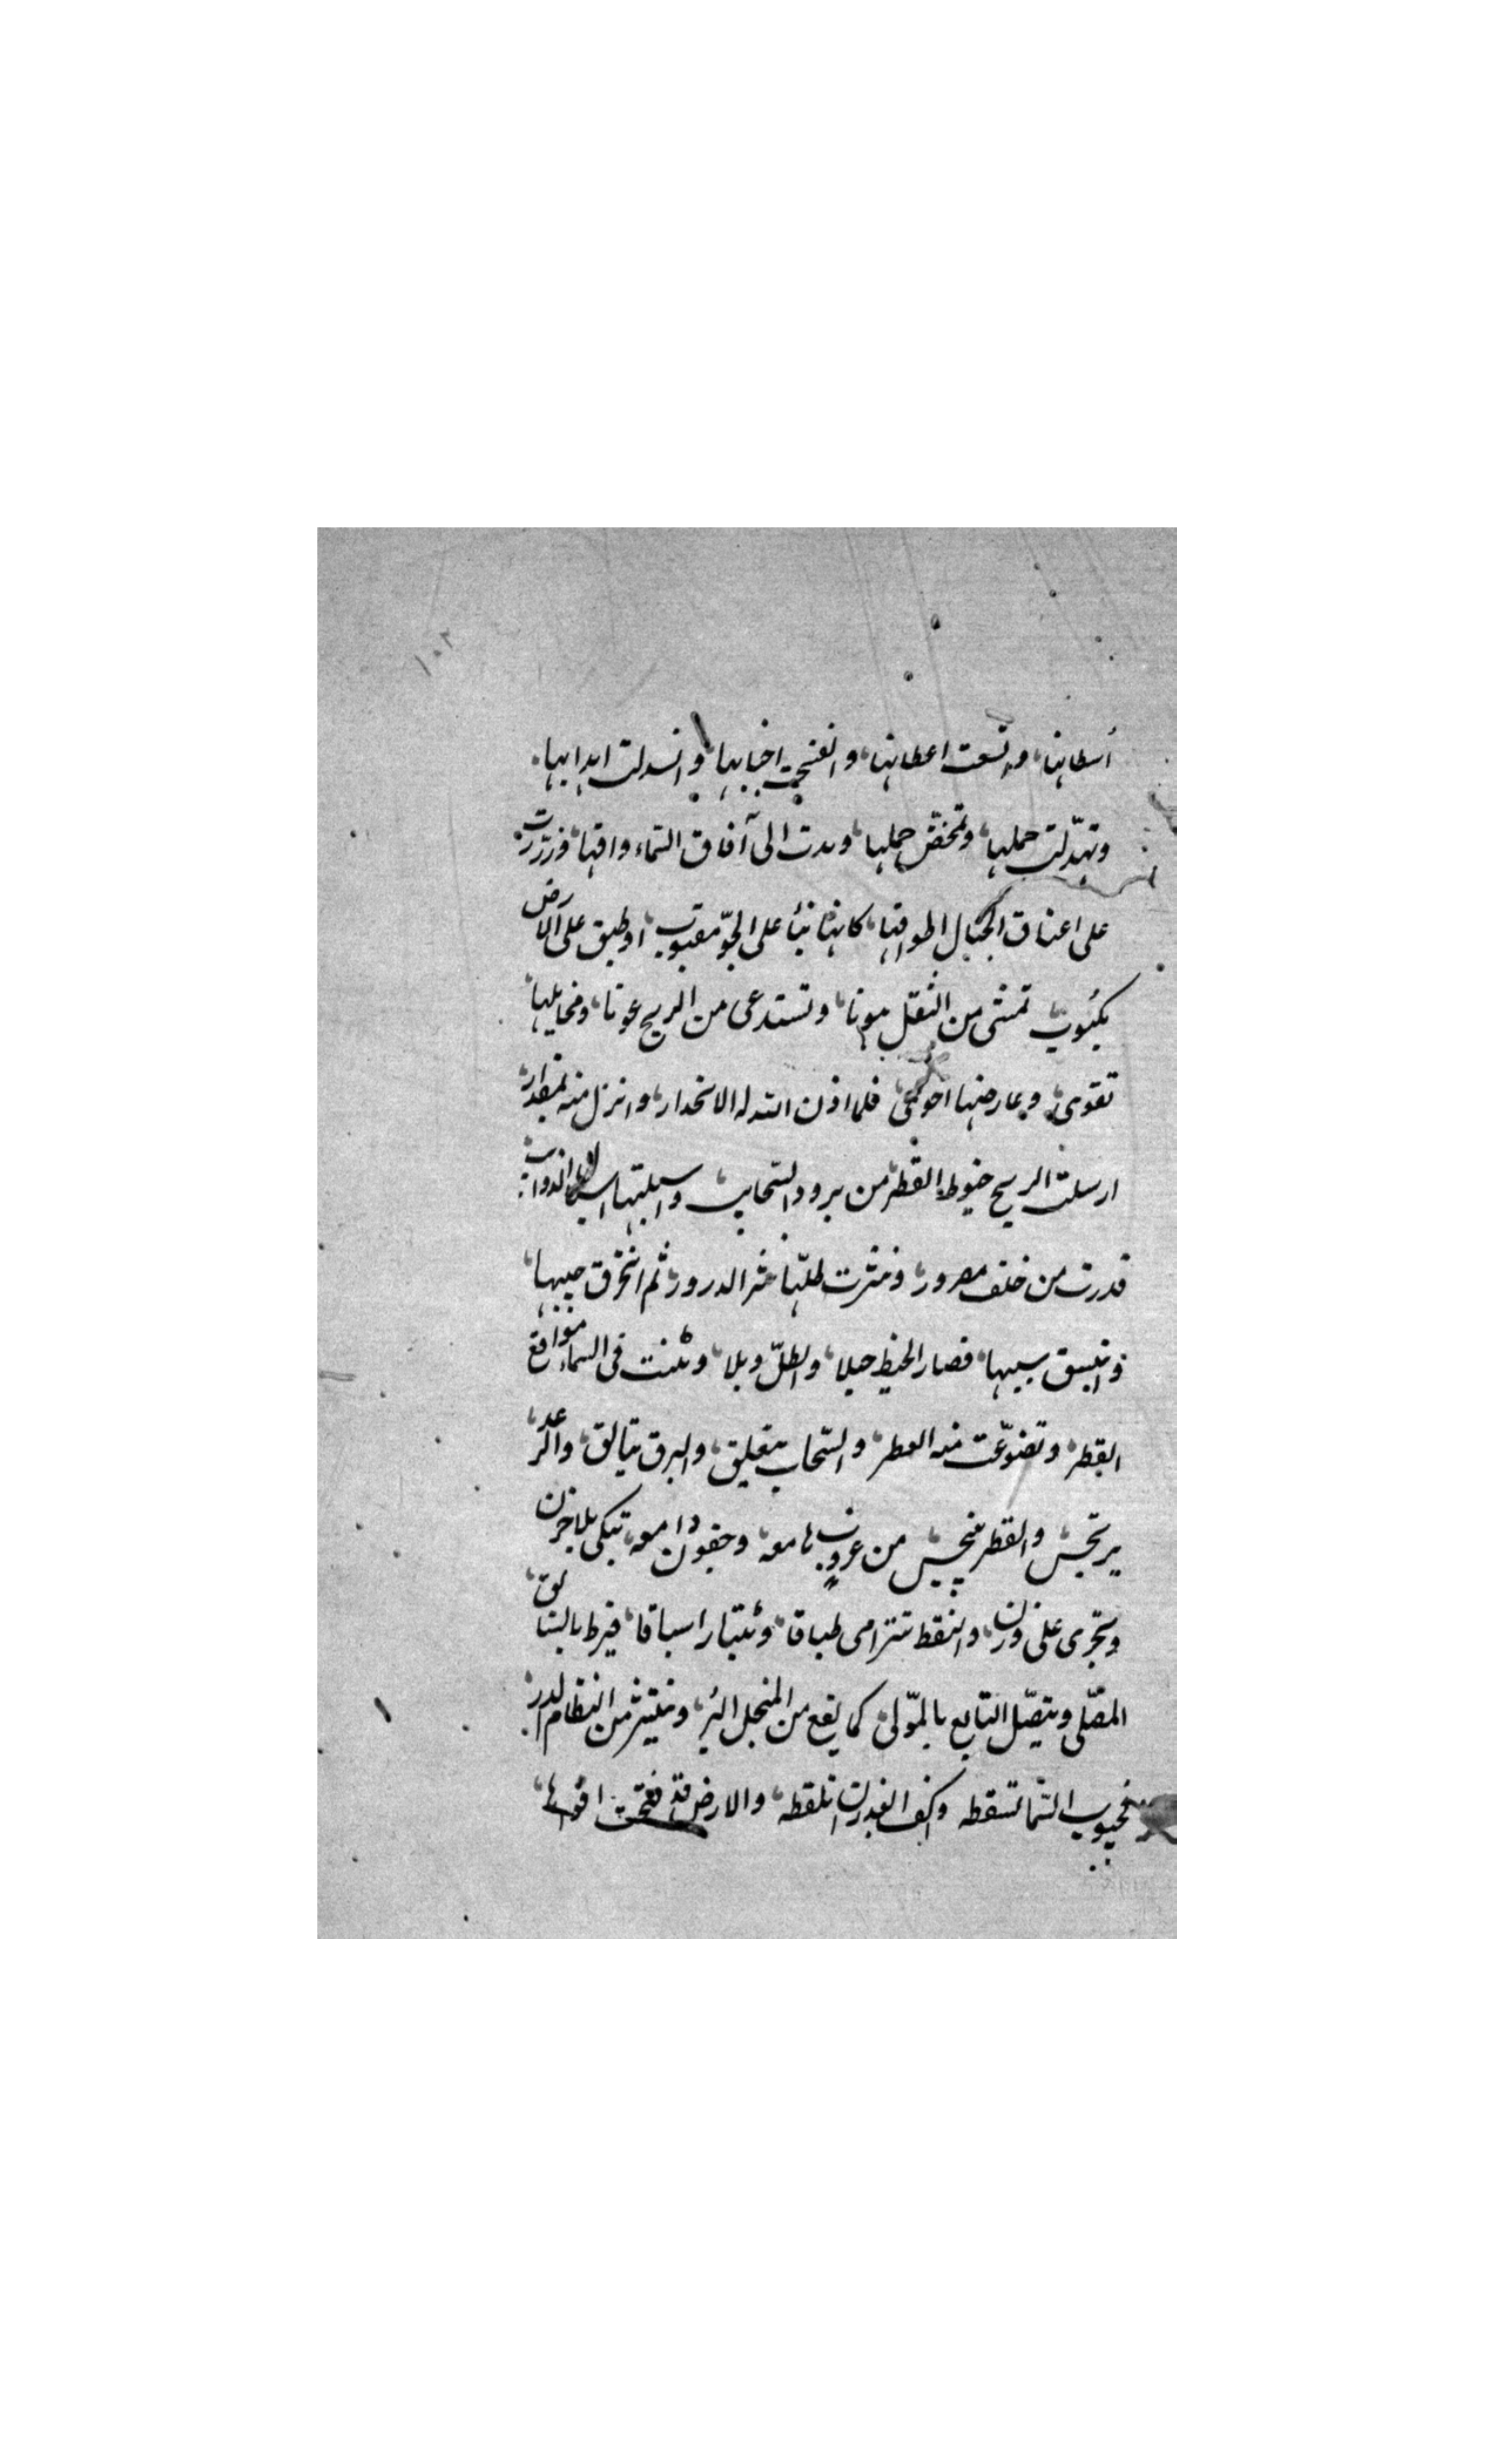 ١٠٢
أسطانها، واتسعت اعطانها، وانفتحت اخبابها، وانسدلت اهدابها.
وتهدّلت حملها، وتمخّض حملها، ومدت الى آفاق السّماء واقها، وزررت
على اعناق الجبال اطواقها، كانها بناً على الجوّ مقبوب، او طبق على الارض
مكبوب تمشى من الثقل هونا، وتستدعى من الريح عونا، ومخايلها
تقوى، وعارضها احوى، فلما اذن الله له الانحدار، وانزل منه بمقدار،
ارسلت الريح خيوط القطر، من برود السّحاب، واسبلتها اسبال الذوائب
فدرت من خلف مصرور، ونثرت طلّها نثر الدرور، ثم انخرق جيبها،
وانبسق سيبها، فصار الخيط حبلا، والطلّ وبلا، وبُنت فى السماء مواقع
القطر، وتضوّعت منه العطر، والسّحاب يتعلق، والبرق يتالق، والرّعد
يرتجس، والقطر ينبجس من عروب هامعة، وجفون دامعه، تبكى بلا حزن
وتجرى على وزن، والنقط تترامى طباقا، وتتبارا سباقا، فيرط بالسّابق،
المصّلى ويتصّل التابع بالموّلى، كما يقع من المنخل البُر، وينتثر من النظام الدر،
فحبوب السّما تسقطه واكف الغدران تلقطه، والارض قد فتحت افواها،